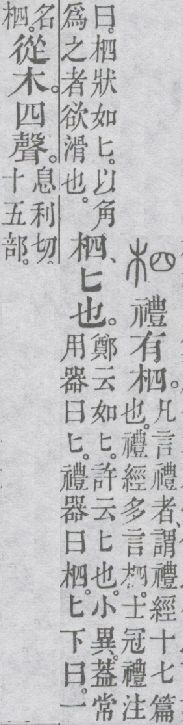 柶
禮有柶。
凡言禮者、謂禮經十七篇
也。禮經多言柶。士冠禮注
曰。柶狀如匕。以角
爲之者欲滑也。
柶、匕也。
鄭云如匕。許云匕也。小異。葢常
用器曰匕。禮器曰柶。匕下曰。一
名
柶。
從木。四聲。
息利切。
十五部。